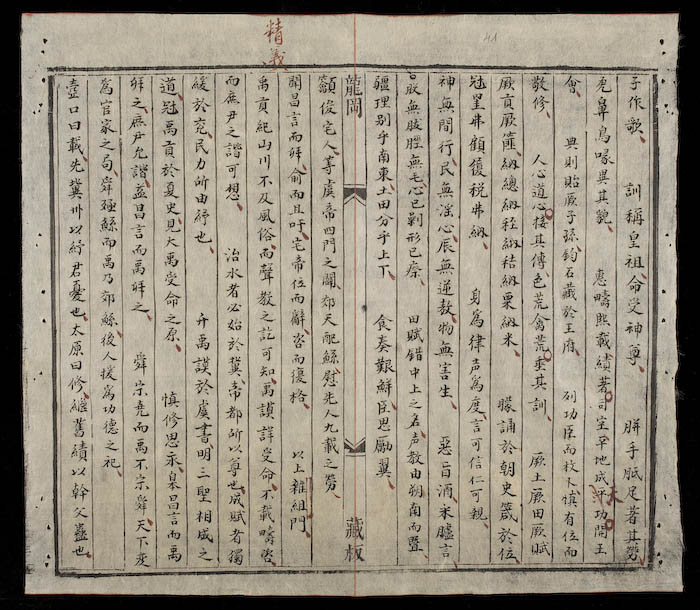 精義
41
子作歌 訓稱皇祖命受神尊 胼手胝足著其勞
虎鼻鳥喙異其貌 惠疇熙載績著司空平地成天功開王
會 典則貽厥子孫鈞石藏於王府 列功臣而枚卜慎有位而
敬修 人心道心接其傳色荒禽荒垂其訓 厥土厥田厥賦
厥貢厥篚納總納銍納秸納粟納米 朦誦於朝史箴於位
冠罣弗顧復稅弗納 身為律声為度言可信仁可親
神無間行民無淫心辰無遞教物無害生 惡旨酒來臚言
股無胈脛無毛心已剿形已瘵 田賦錯中上之名声教由朔南而暨
疆理别乎南東土田分乎上下 食奏艱鮮臣思勵翼
龍岡 藏板
籲俊宅人等虞帝四門之闢郊天配鯀慰先人九載之勞
聞昌言而拜俞而且吁宅帝位而辭咨而復格 以上雜組門
禹貢紀山川不及風俗而聲教之訖可知禹謨詳受命不載疇咨
而庶尹之諧可想 治水者必始於冀帝都所以尊也成賦者獨
緩於兗民力所由紓也 弁禹謨於虞書明三聖相成之
道冠禹貢於夏史見大禹受命之原 慎修思永皋昌言而禹
拜之庶尹允諧益昌言而禹拜之 舜宗堯而禹不宗舜天下変
為官家之局舜殛鯀而禹乃郊鯀後人援為功德之祀
壺口曰載先冀州以紓君憂也太原曰修繼舊績以幹父蠱也